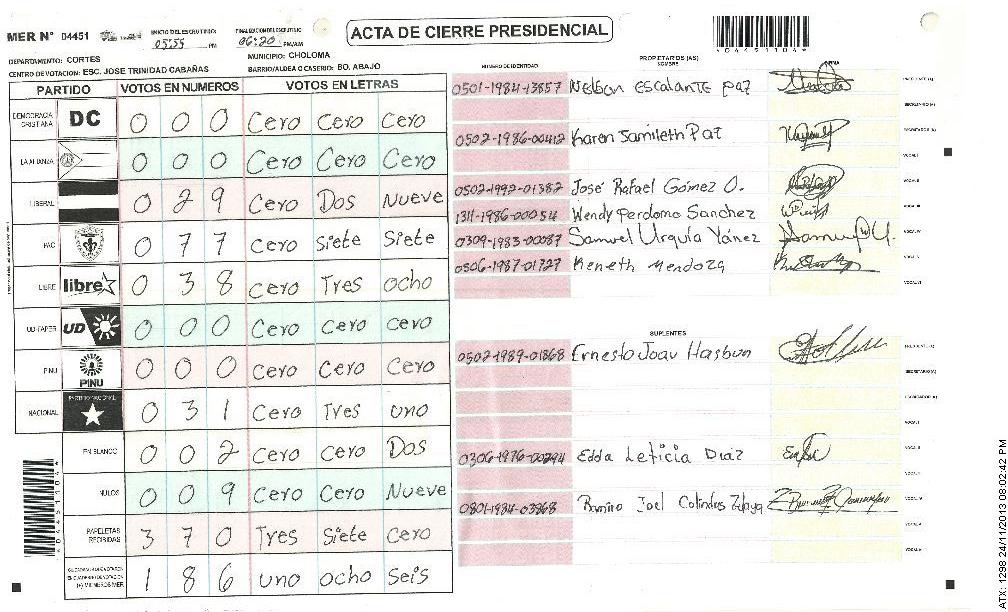 MER N° 04451
INICIO DEL ESCRUTINIO: 05:55 PM
FINALIZACION DEL ESCRUTINIO 06:20 PM/AM
ACTA DE CIERRE PRESIDENCIAL
*04451104*
DEPARTAMENTO: CORTES
MUNICIPIO: CHOLOMA
CENTRO DE VOTACION: ESC. JOSE TRINIDAD CABAÑAS
BARRIO/ALDEA O CASERIO: BO. ABAJO
PARTIDO VOTOS EN NUMEROS VOTOS EN LETRAS
DEMOCRACIA CRISTIANA DC 0 0 0 Cero Cero Cero
LA ALIANZA 0 0 0 Cero Cero Cero
LIBERAL 0 2 9 Cero Dos Nueve
PAC 0 7 7 Cero Siete Siete
LIBRE libre 0 3 8 Cero Tres ocho
UD-FAPER UD 0 0 0 Cero Cero cero
PINU PINU 0 0 0 Cero Cero Cero
NACIONAL PARTIDO NACIONAL 0 3 1 Cero Tres uno
EN BLANCO 0 0 2 Cero Cero Dos
NULOS 0 0 9 Cero Cero Nueve
PAPELETAS RECIBIDAS 3 7 0 Tres Siete Cero
1 8 6 uno ocho seis
*04451104*
NUMERO DE IDENTIDAD
PROPIETARIOS (AS)
NOMBRE
FIRMA
0501-1984-13857 Nelson Escalante Paz PRESIDENTE (A)
SECRETARIO (A)
0502-1986-00412 Karen Jamileth Paz ESCRUTADOR (A)
VOCAL I
0502-1992-01382 José Rafael Gómez O. VOCAL II
1311-1986-00054 Wendy Perdomo Sanchez VOCAL III
0309-1983-00087 Samuel Urquía Yánez VOCAL IV
0506-1987-01727 Keneth Mendoza VOCAL V
VOCAL VI
SUPLENTES
0502-1989-01868 Ernesto Joav Hasbun PRESIDENTE (A)
SECRETARIO (A)
ESCRUTADOR (A)
VOCAL I
0306-1976-00294 Edda Leticia Diaz VOCAL II
0801-1984-03868 Ramiro Joel Colindres Zelaya VOCAL IV
VOCAL V
VOCAL VI
ATX: 1298 24/11/2013 08:02:42 PM